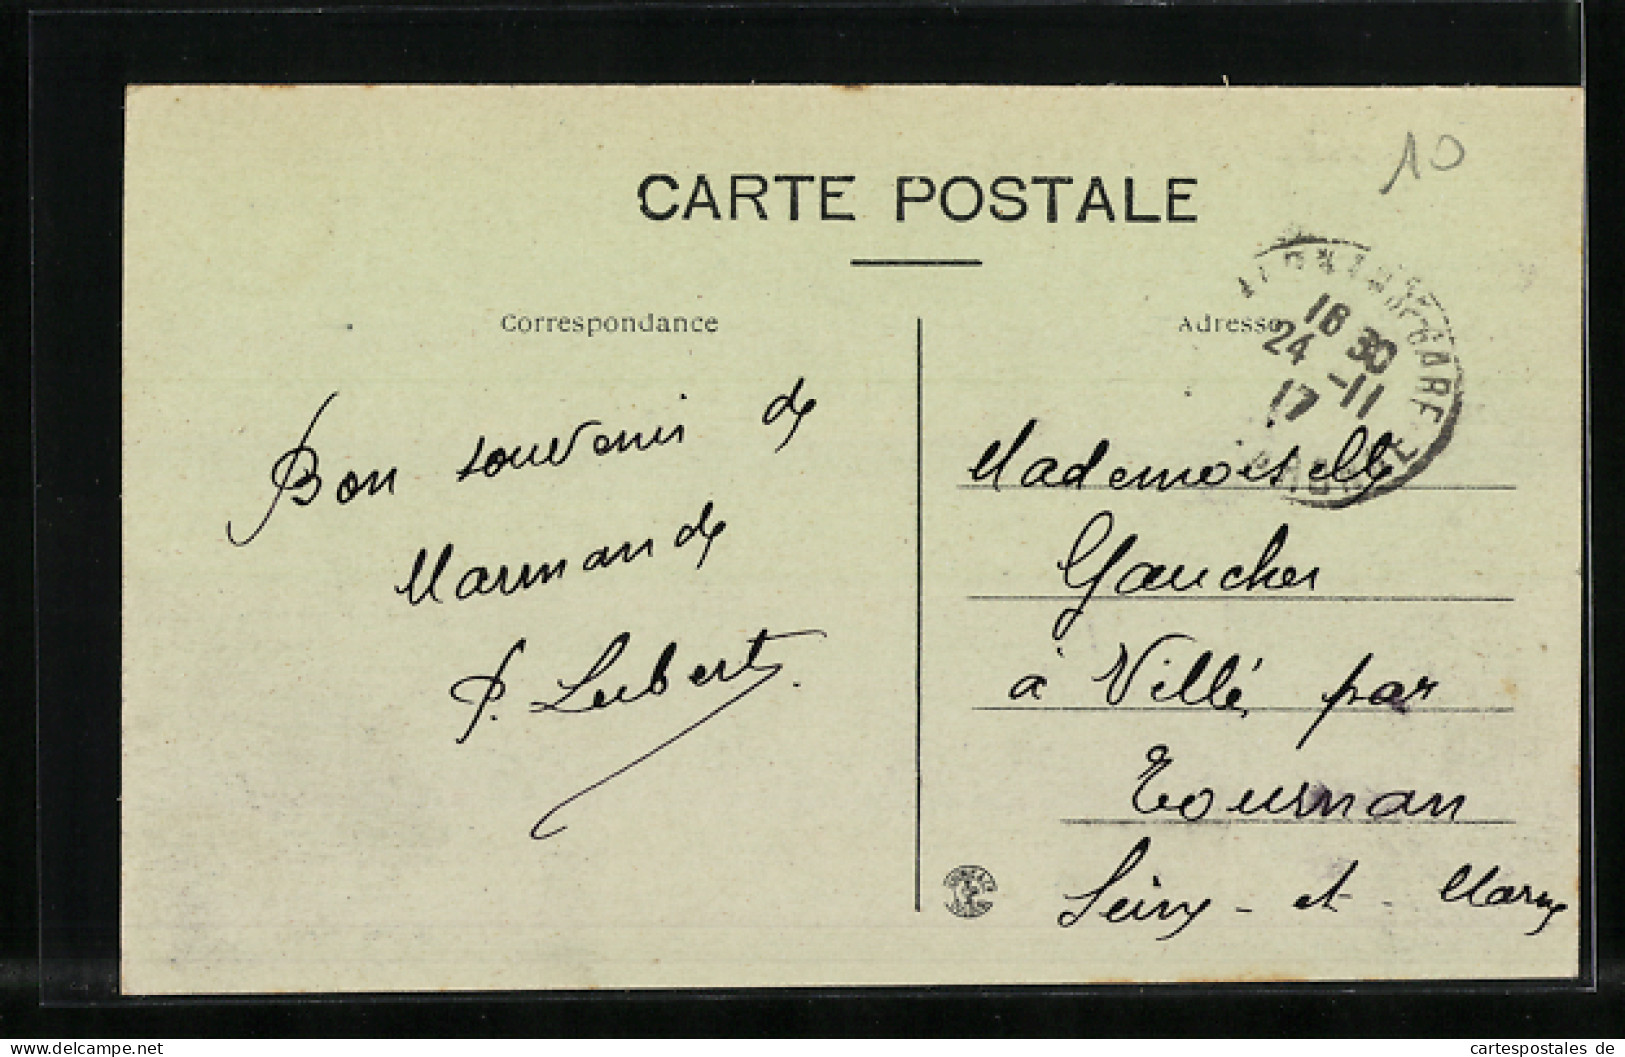 10
CARTE POSTALE
Correspondance
Adresse
18 30
24 -11
17
GARE
Bon souvenir de
Marmande
P. Lubert
Mademoiselle
Gaucher
à Villé par
Tournan
Seine - et - Marne
www.delcampe.net
cartespostales de